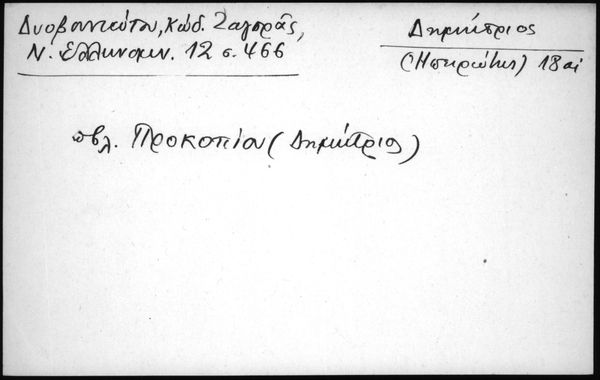 Δυοβουνιώτου, Κώδ. Ζαγορᾶς,
Ν. Ἑλληνομν. 12 σ. 466
Δημήτριος
(Ἠπειρώτης) 18 αἰ
πβλ. Προκοπίου (Δημήτριος)